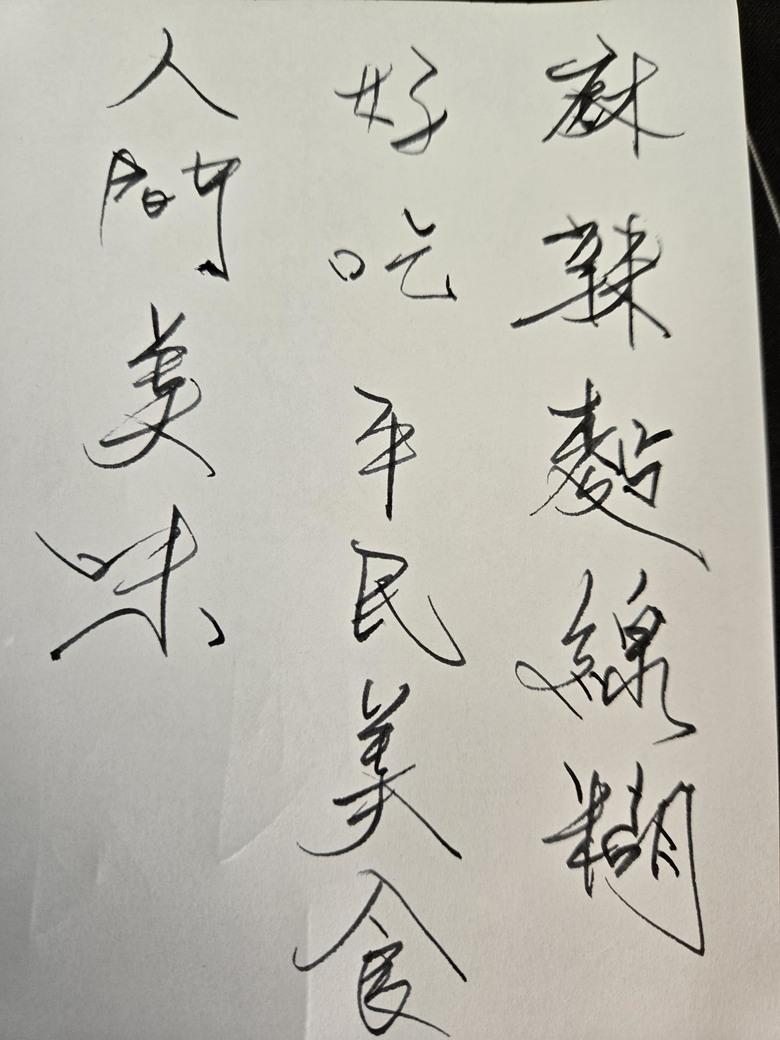 麻辣麵線糊
好吃平民美食
人間美味